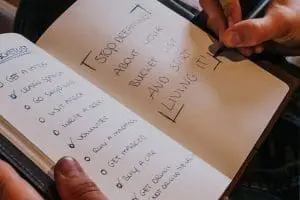 BUCKETLIST
GET A TATTOO
LEARN SPANISH
GO SKYDIVING
VISIT AFRICA
WRITE A BOOK
VOLUNTEER
RUN A MARATHON
GET MARRIED
BUY A CAR
GET DRUNK
STOP DREAMING
ABOUT YOUR
BUCKET LIST
AND START
LIVING IT!